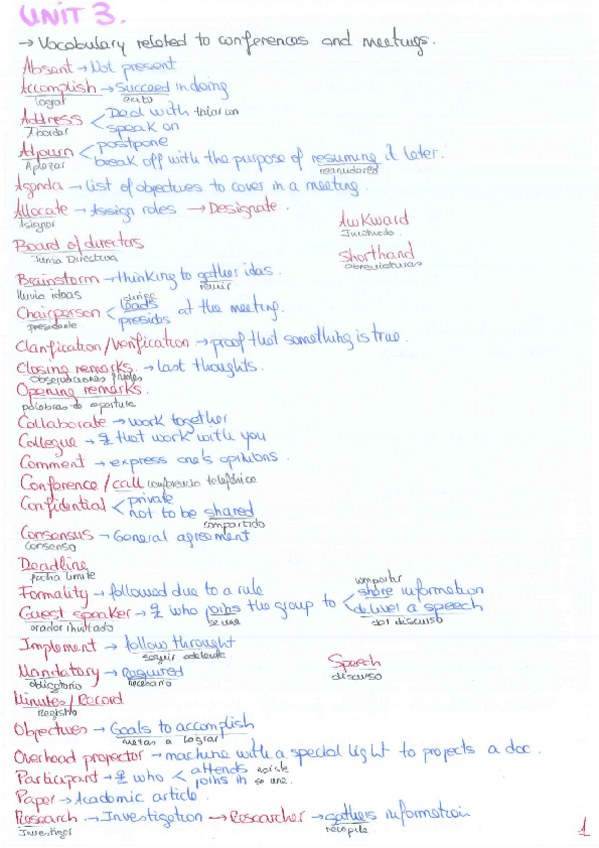 UNIT 3.
→ Vocabulary related to conferences and meetings.
Absent → Not present
Accomplish → Succeed in doing
lograr éxito
Address < Deal with tratar con
Abordar speak on
Adjourn < postpone
Aplazar break off with the purpose of resuming it later.
reanudarlo
Agenda → list of objectives to cover in a meeting.
Allocate → Assign roles → Designate.
Asignar
Awkward
Incómodo
Board of directors
Junta Directiva
Shorthand
abreviaturas
Brainstorm → thinking to gather ideas.
lluvia ideas reunir
Chairperson < leads at the meeting.
presidente presides
Clarification / Verification → proof that something is true.
Closing remarks → last thoughts.
observaciones finales
Opening remarks.
palabras de apertura
Collaborate → work together
Collegue → that work with you
Comment → express one's opinions.
Conference / call conferencia telefónica
Confidential < private
not to be shared
compartido
Consensus → General agreement
consenso
Deadline
fecha límite
Formality → followed due to a rule
compartir
Guest speaker → who joins the group to < share information
orador invitado se une deliver a speech
dar discurso
Implement → follow throught
seguir adelante
Mandatory → Required
obligatorio necesario
Speech
discurso
Minutes / Record
Registro
Objectives → Goals to accomplish
metas a lograr
Overhead projector → machine with a special light to projects a doc.
Participant → who < attends asiste
joins in se une.
Paper → Academic article.
Research → Investigation → Researcher → gathers information
Investigar recopila
1